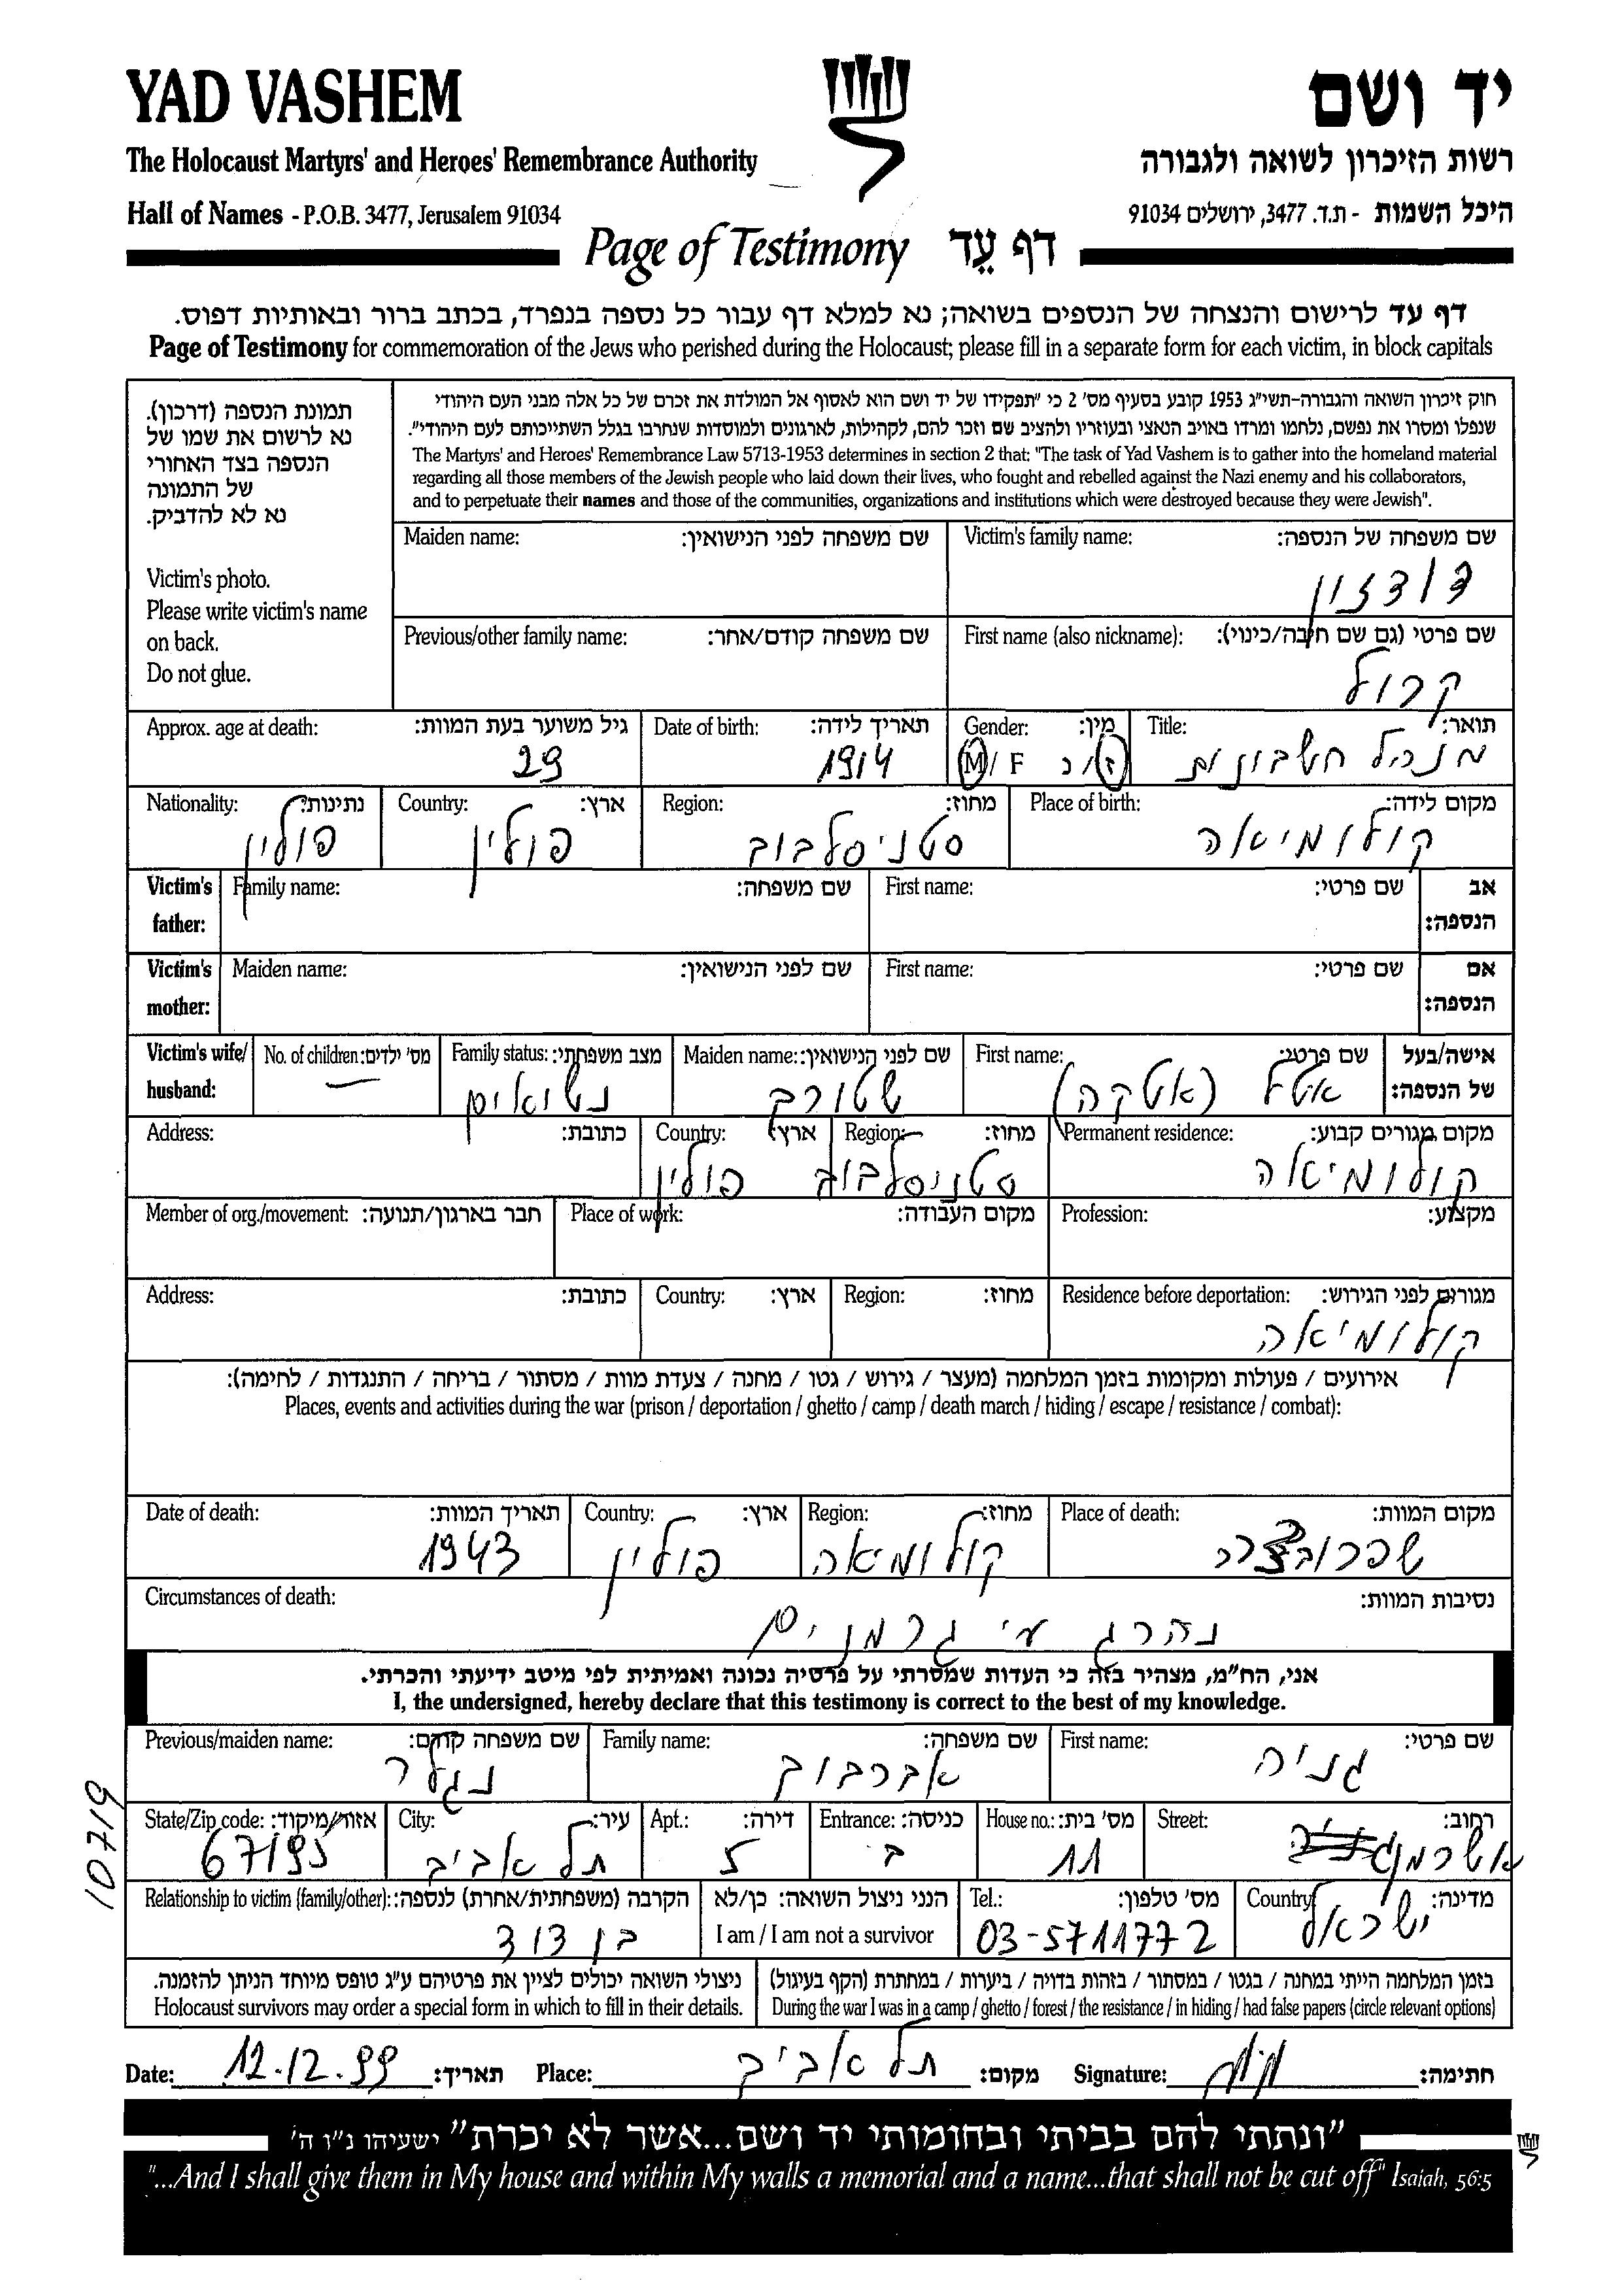 YAD VASHEM
יד ושם
The Holocaust Martyrs' and Heroes' Remembrance Authority
רשות הזיכרון לשואה ולגבורה
Hall of Names - P.O.B. 3477, Jerusalem 91034
היכל השמות - ת.ד. 3477, ירושלים 91034
Page of Testimony דף עֵד
דף עד לרישום והנצחה של הנספים בשואה; נא למלא דף עבור כל נספה בנפרד, בכתב ברור ובאותיות דפוס.
Page of Testimony for commemoration of the Jews who perished during the Holocaust; please fill in a separate form for each victim, in block capitals
תמונת הנספה (דרכון).
נא לרשום את שמו של
הנספה בצד האחורי
של התמונה
נא לא להדביק.
Victim's photo.
Please write victim's name
on back.
Do not glue.
חוק זיכרון השואה והגבורה-תשי"ג 1953 קובע בסעיף מס' 2 כי "תפקידו של יד ושם הוא לאסוף אל המולדת את זכרם של כל אלה מבני העם היהודי
שנפלו ומסרו את נפשם, נלחמו ומרדו באויב הנאצי ובעוזריו ולהציב שם וזכר להם, לקהילות, לארגונים ולמוסדות שנחרבו בגלל השתייכותם לעם היהודי".
The Martyrs' and Heroes' Remembrance Law 5713-1953 determines in section 2 that: "The task of Yad Vashem is to gather into the homeland material
regarding all those members of the Jewish people who laid down their lives, who fought and rebelled against the Nazi enemy and his collaborators,
and to perpetuate their names and those of the communities, organizations and institutions which were destroyed because they were Jewish".
Maiden name: שם משפחה לפני הנישואין: Victim's family name: שם משפחה של הנספה:
דודזון
Previous/other family name: שם משפחה קודם/אחר: First name (also nickname): שם פרטי (גם שם חיבה/כינוי):
קרול
Approx. age at death: גיל משוער בעת המוות: Date of birth: תאריך לידה: Gender: מין: Title: תואר:
29 1914 M / F ז / נ מנהל חשבונות
Nationality: נתינות: Country: ארץ: Region: מחוז: Place of birth: מקום לידה:
פולין פולין סטניסלבוב קולומיאה
Victim's father: Family name: שם משפחה: First name: שם פרטי: אב הנספה:
Victim's mother: Maiden name: שם לפני הנישואין: First name: שם פרטי: אם הנספה:
Victim's wife/ husband: No. of children: מס' ילדים: Family status: מצב משפחתי: Maiden name: שם לפני הנישואין: First name: שם פרטי: אישה/בעל של הנספה:
— נשואים שטורך אטל (אטקה)
Address: כתובת: Country: ארץ: Region: מחוז: Permanent residence: מקום מגורים קבוע:
פולין סטניסלבוב קולומיאה
Member of org./movement: חבר בארגון/תנועה: Place of work: מקום העבודה: Profession: מקצוע:
Address: כתובת: Country: ארץ: Region: מחוז: Residence before deportation: מגורים לפני הגירוש:
קולומיאה
אירועים / פעולות ומקומות בזמן המלחמה (מעצר / גירוש / גטו / מחנה / צעדת מוות / מסתור / בריחה / התנגדות / לחימה):
Places, events and activities during the war (prison / deportation / ghetto / camp / death march / hiding / escape / resistance / combat):
Date of death: תאריך המוות: Country: ארץ: Region: מחוז: Place of death: מקום המוות:
1943 פולין קולומאה
Circumstances of death: נסיבות המוות:
נהרג ע"י גרמנים
אני, הח"מ, מצהיר בזה כי העדות שמסרתי על פרטיה נכונה ואמיתית לפי מיטב ידיעתי והכרתי.
I, the undersigned, hereby declare that this testimony is correct to the best of my knowledge.
Previous/maiden name: שם משפחה קודם: Family name: שם משפחה: First name: שם פרטי:
נגלר אברבוך גניה
State/Zip code: אזור/מיקוד: City: עיר: Apt.: דירה: Entrance: כניסה: House no.: מס' בית: Street: רחוב:
67195 תל אביב 5 ב 11
Relationship to victim (family/other): הקרבה (משפחתית/אחרת) לנספה: הנני ניצול השואה: כן/לא Tel.: מס' טלפון: Country: מדינה:
בן דוד I am / I am not a survivor 03-5711772 ישראל
ניצולי השואה יכולים לציין את פרטיהם ע"ג טופס מיוחד הניתן להזמנה.
Holocaust survivors may order a special form in which to fill in their details.
בזמן המלחמה הייתי במחנה / בגטו / במסתור / בזהות בדויה / ביערות / במחתרת (הקף בעיגול)
During the war I was in a camp / ghetto / forest / the resistance / in hiding / had false papers (circle relevant options)
Date: 12.12.99 תאריך: Place: תל אביב מקום: Signature: חתימה:
"ונתתי להם בביתי ובחומותי יד ושם...אשר לא יכרת" ישעיהו נ"ו ה'
"...And I shall give them in My house and within My walls a memorial and a name...that shall not be cut off" Isaiah, 56:5
10719